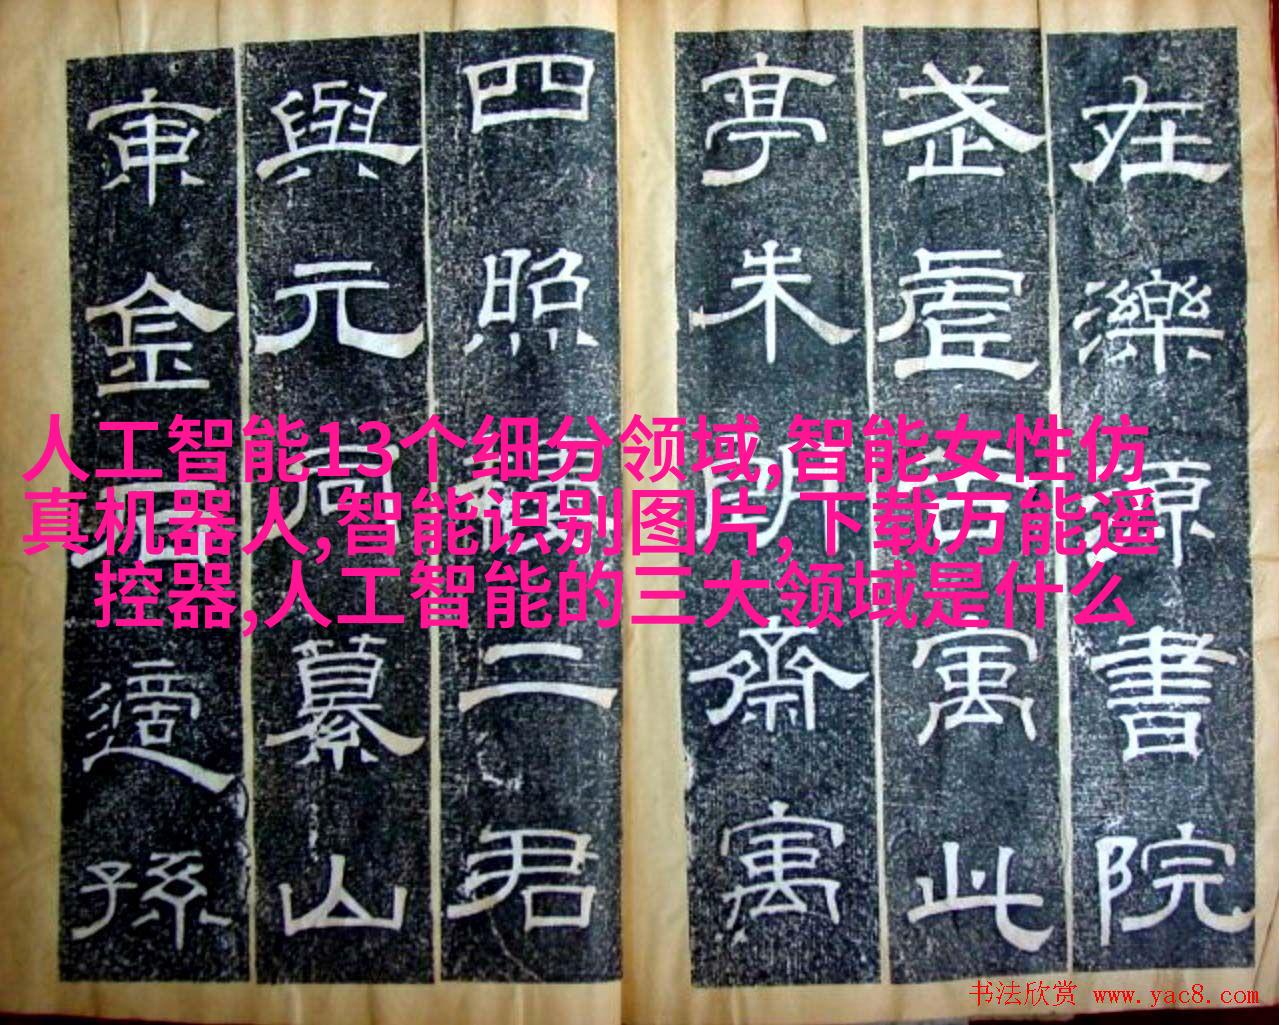 在濼源書院
武虛谷寓此
亭朱朗齋寓
四照樓二君
與元同纂山
東金石適孫
人工智能13个细分领域,智能女性仿
真机器人,智能识别图片,下载万能遥
控器,人工智能的三大领域是什么
书法欣赏 www.yac8.com